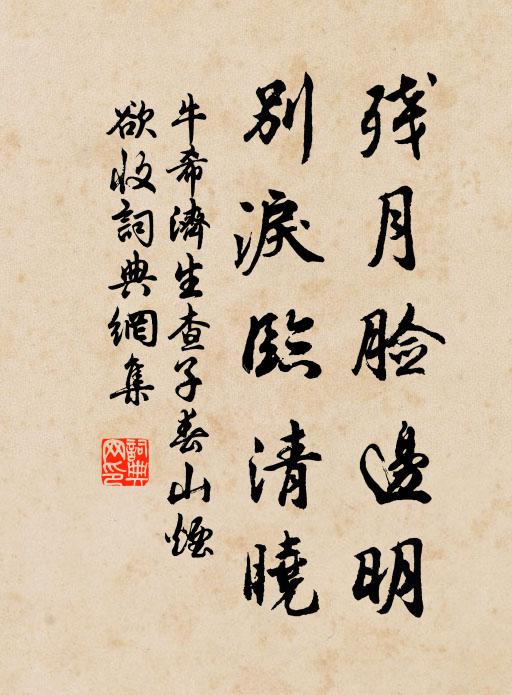 残月脸邊明
別淚臨清曉
牛希濟生查子春山煙
欲收詞典網集
詞典網印